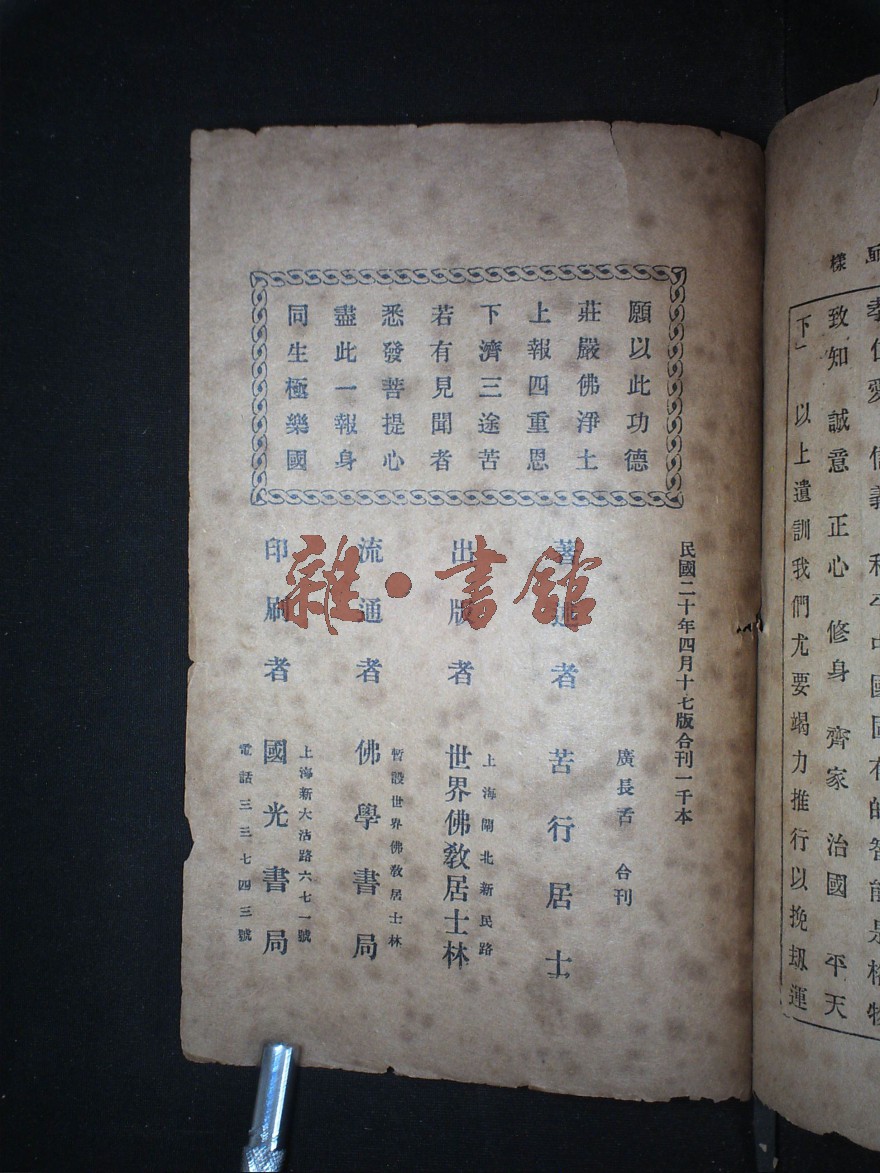 樣
孝仁愛 信義 和平中國固有的智能是格物
致知 誠意 正心 修身 齊家 治國 平天
下 以上遺訓我們尤要竭力推行以挽劫運
願以此功德
莊嚴佛淨土
上報四重恩
下濟三途苦
若有見聞者
悉發菩提心
盡此一報身
同生極樂國
民國二十年四月十七版合刊一千本
廣長舌 合刊
著述者 苦行居士
上海閘北新民路
出版者 世界佛敎居士林
暫設世界佛敎居士林
流通者 佛學書局
上海新大沽路六七一號
印刷者 國光書局
電話三三七四三號
雜·書舘